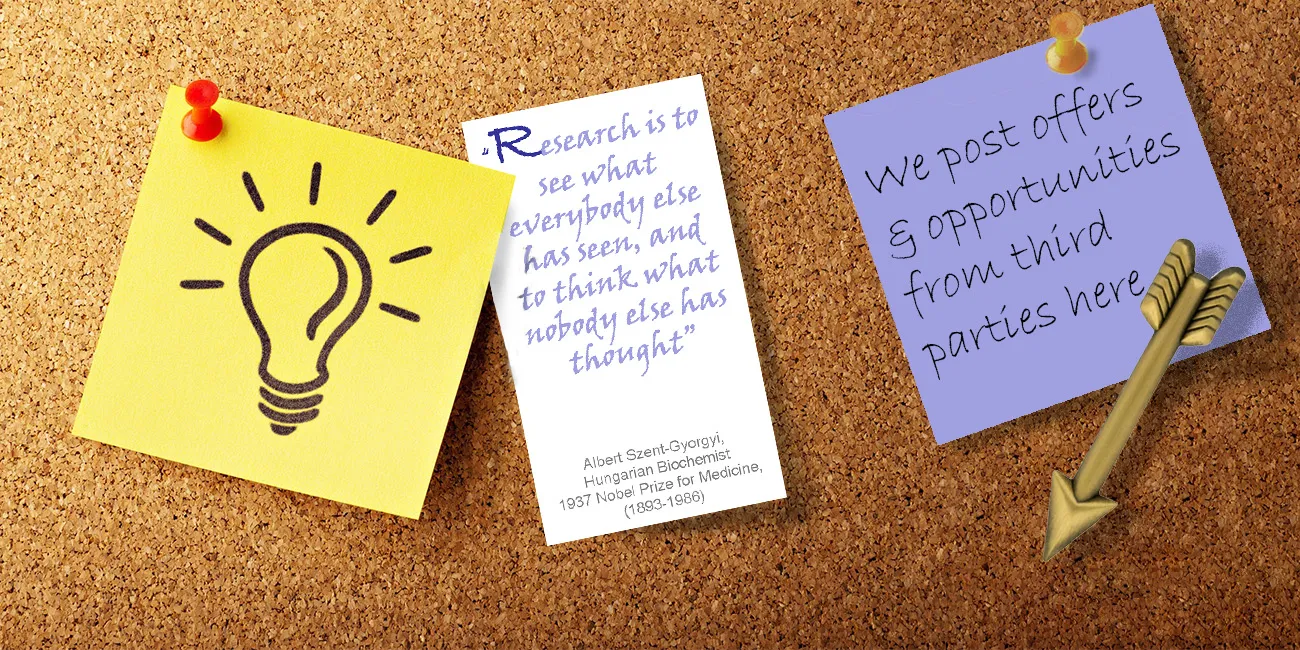 „Research is to
see what
everybody else
has seen, and
to think what
nobody else has
thought”
Albert Szent-Gyorgyi,
Hungarian Biochemist
1937 Nobel Prize for Medicine,
(1893-1986)
We post offers
& opportunities
from third
parties here